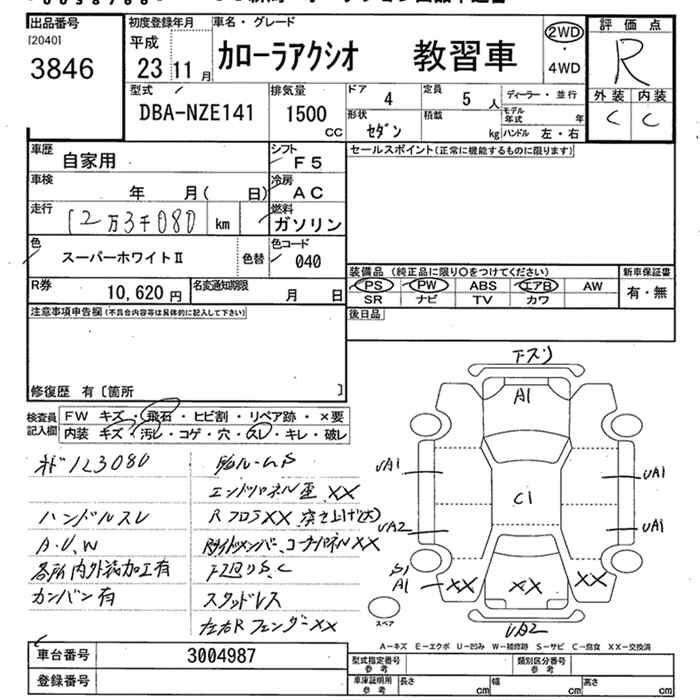 出品番号
[2040]
3846
初度登録年月
平成
23年11月
車名・グレード
カローラアクシオ 教習車
2WD
・
4WD
評価点
R
外装 内装
C C
型式
DBA-NZE141
排気量
1500
CC
ドア
4
定員
5 人
ディーラー・並行
モデル年式 年
形状
セダン
積載
kg
ハンドル 左・右
車歴
自家用
シフト
F5
セールスポイント(正常に機能するものに限ります)
車検
年 月( 日)
冷房
AC
走行
12万3千080 km
燃料
ガソリン
色
スーパーホワイトⅡ
色替
色コード
040
装備品 (純正品に限り○をつけてください)
新車保証書
PS PW ABS エアB AW
有・無
SR ナビ TV カワ
R券
10,620 円
名変通知期限
月 日
後日品
注意事項申告欄(不具合内容等は具体的に記入して下さい)
修復歴 有 [箇所 ]
検査員記入欄
FW キズ・飛石・ヒビ割・リペア跡・×要
内装 キズ・汚レ・コゲ・穴・スレ・キレ・破レ
123080
エンドパネル歪、XX
ハンドルスレ
R フロアXX 突き上げ(大)
A.U.W
コーナーパネルXX
各所内外装加工有
下回りS.C
カンバン有
スタッドレス
左右Rフェンダー XX
下スリ
A1
UA1
UA1
C1
UA2
UA1
S1
A1
XX
XX
XX
UA2
スペア
A−キズ E−エクボ U−凹み W−補修跡 S−サビ C−腐食 XX−交換済
車台番号
3004987
登録番号
型式指定番号
参考
類別区分番号
参考
車庫証明用
参考
長さ cm
幅 cm
高さ cm